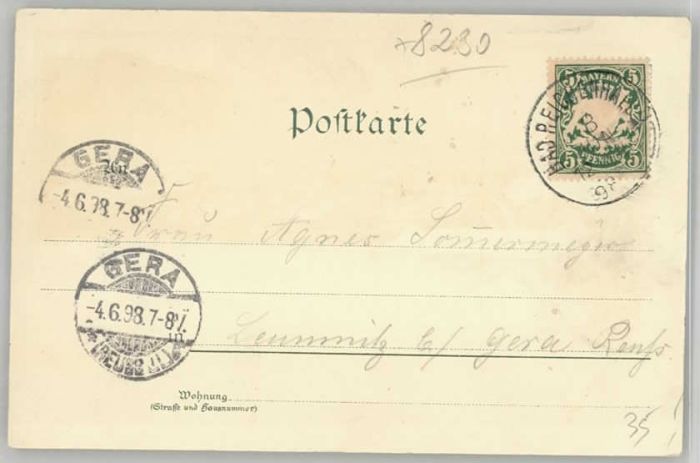 *8230
5 BAYERN 5
5 PFENNIG 5
BAD REICHENHALL
98
Postkarte
GERA
-4.6.98.7-8V.
Frau Agnes
GERA
-4.6.98.7-8V.
(REUSS J.L.)
in
Leumnitz b/ Gera Reuß
Wohnung
(Straße und Hausnummer)
35